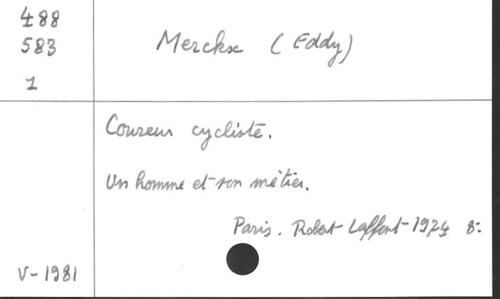 488
583
1
Merckx (Eddy)
Coureur cycliste.
Un homme et son métier.
Paris. Robert Laffont - 1974 8°.
V-1981